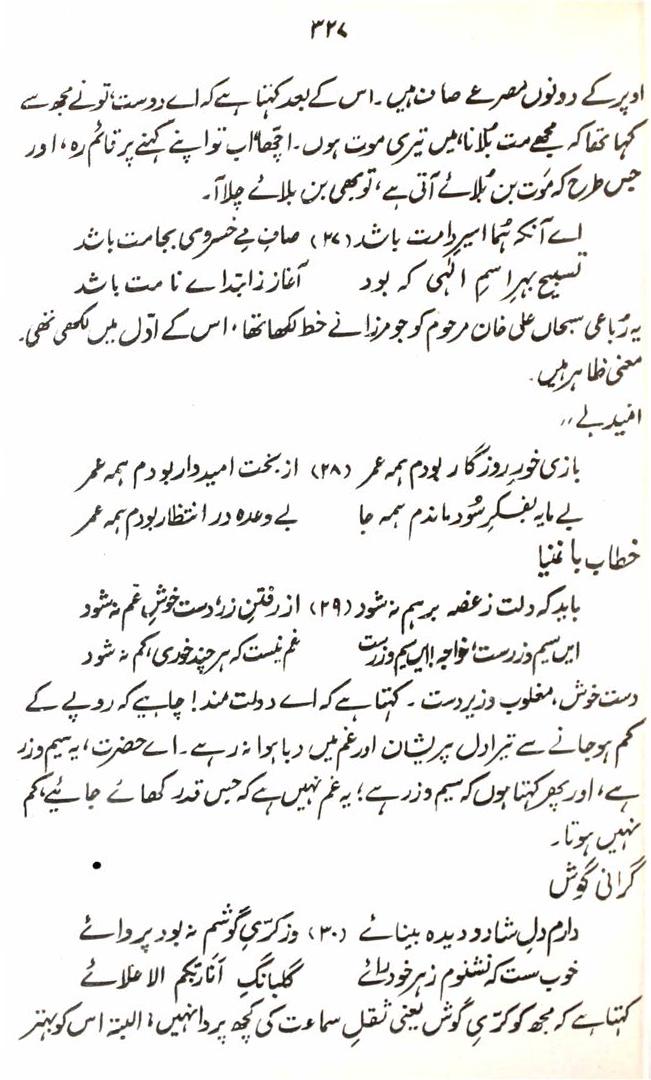 ۳۲۷
اوپر کے دونوں مصرعے صاف ہیں۔ اس کے بعد کہتا ہے کہ اے دوست، تو نے مجھ سے
کہا تھا کہ مجھے مت بُلانا، میں تیری موت ہوں۔ اچھّا، اب تو اپنے کہنے پر قائم رہ، اور
جس طرح کہ مَوت بن بُلائے آتی ہے، تو بھی بن بلائے چلا آ۔
اے آنکہ ہُما اسیرِ دامت باشد (۲۷) صافِ مےِ خسروی بجامت باشد
تسبیح بہر اسمِ الٰہی کہ بود آغاز ز ابتداے نامت باشد
یہ رُباعی سبحان علی خان مرحوم کو جو مرزا نے خط لکھا تھا، اس کے اوّل میں لکھی تھی۔
معنی ظاہر ہیں۔
بازی خورِ روزگار بودم ہمہ عمر (۲۸) از بخت امیدوار بودم ہمہ عمر
بے مایہ بفکرِ سُود ماندم ہمہ جا بے وعدہ در انتظار بودم ہمہ عمر
خطاب با غنیا
باید کہ دلت ز غصہ برہم نہ شود (۲۹) از رفتنِ زر، دست خوشِ غم نہ شود
ایں سیم و زرست، خواجہ! ایں سیم و زرست غم نیست کہ ہر چند خوری، کم نہ شود
دست خوش، مغلوب و زیردست۔ کہتا ہے کہ اے دولت مند! چاہیے کہ روپے کے
کم ہو جانے سے تیرا دل پریشان اور غم میں دبا ہوا نہ رہے۔ اے حضرت، یہ سیم و زر
ہے، اور پھر کہتا ہوں کہ سیم و زر ہے؛ یہ غم نہیں ہے کہ جس قدر کھائے جائیے، کم
نہیں ہوتا۔
گرانی گوش
دارم دلِ شاد و دیدہ بینائے (۳۰) وز کرّیِ گوشم نہ بود پروائے
خوب ست کہ نشنوم ز ہر خود رائے گلبانگِ اَنَا رَبُّکُمُ الاَعْلائے
کہتا ہے کہ مجھ کو کرّیِ گوش یعنی ثقلِ سماعت کی کچھ پروا نہیں؛ البتہ اس کو بہتر